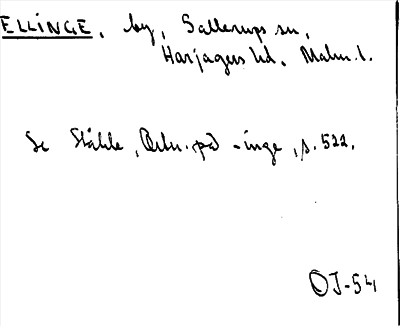 ELLINGE, by, Sallerups sn,
Harjagers hd. Malm. l.
Se Ståhle, Ortn. på -inge, s. 522.
OJ-54